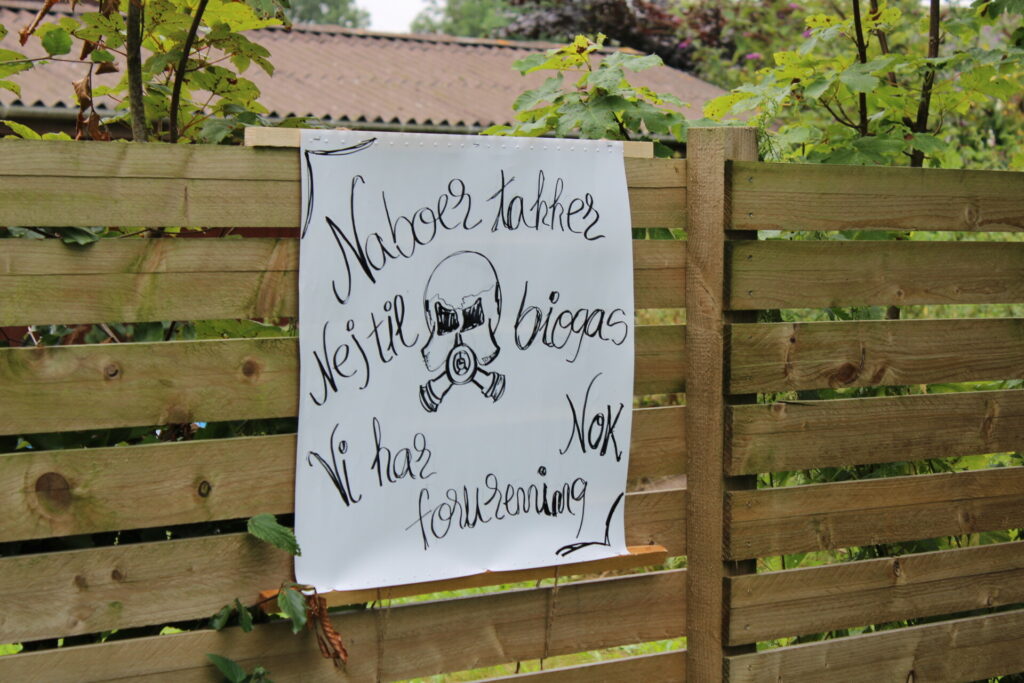 Naboer takker
Nej til biogas
Vi har Nok
forurening